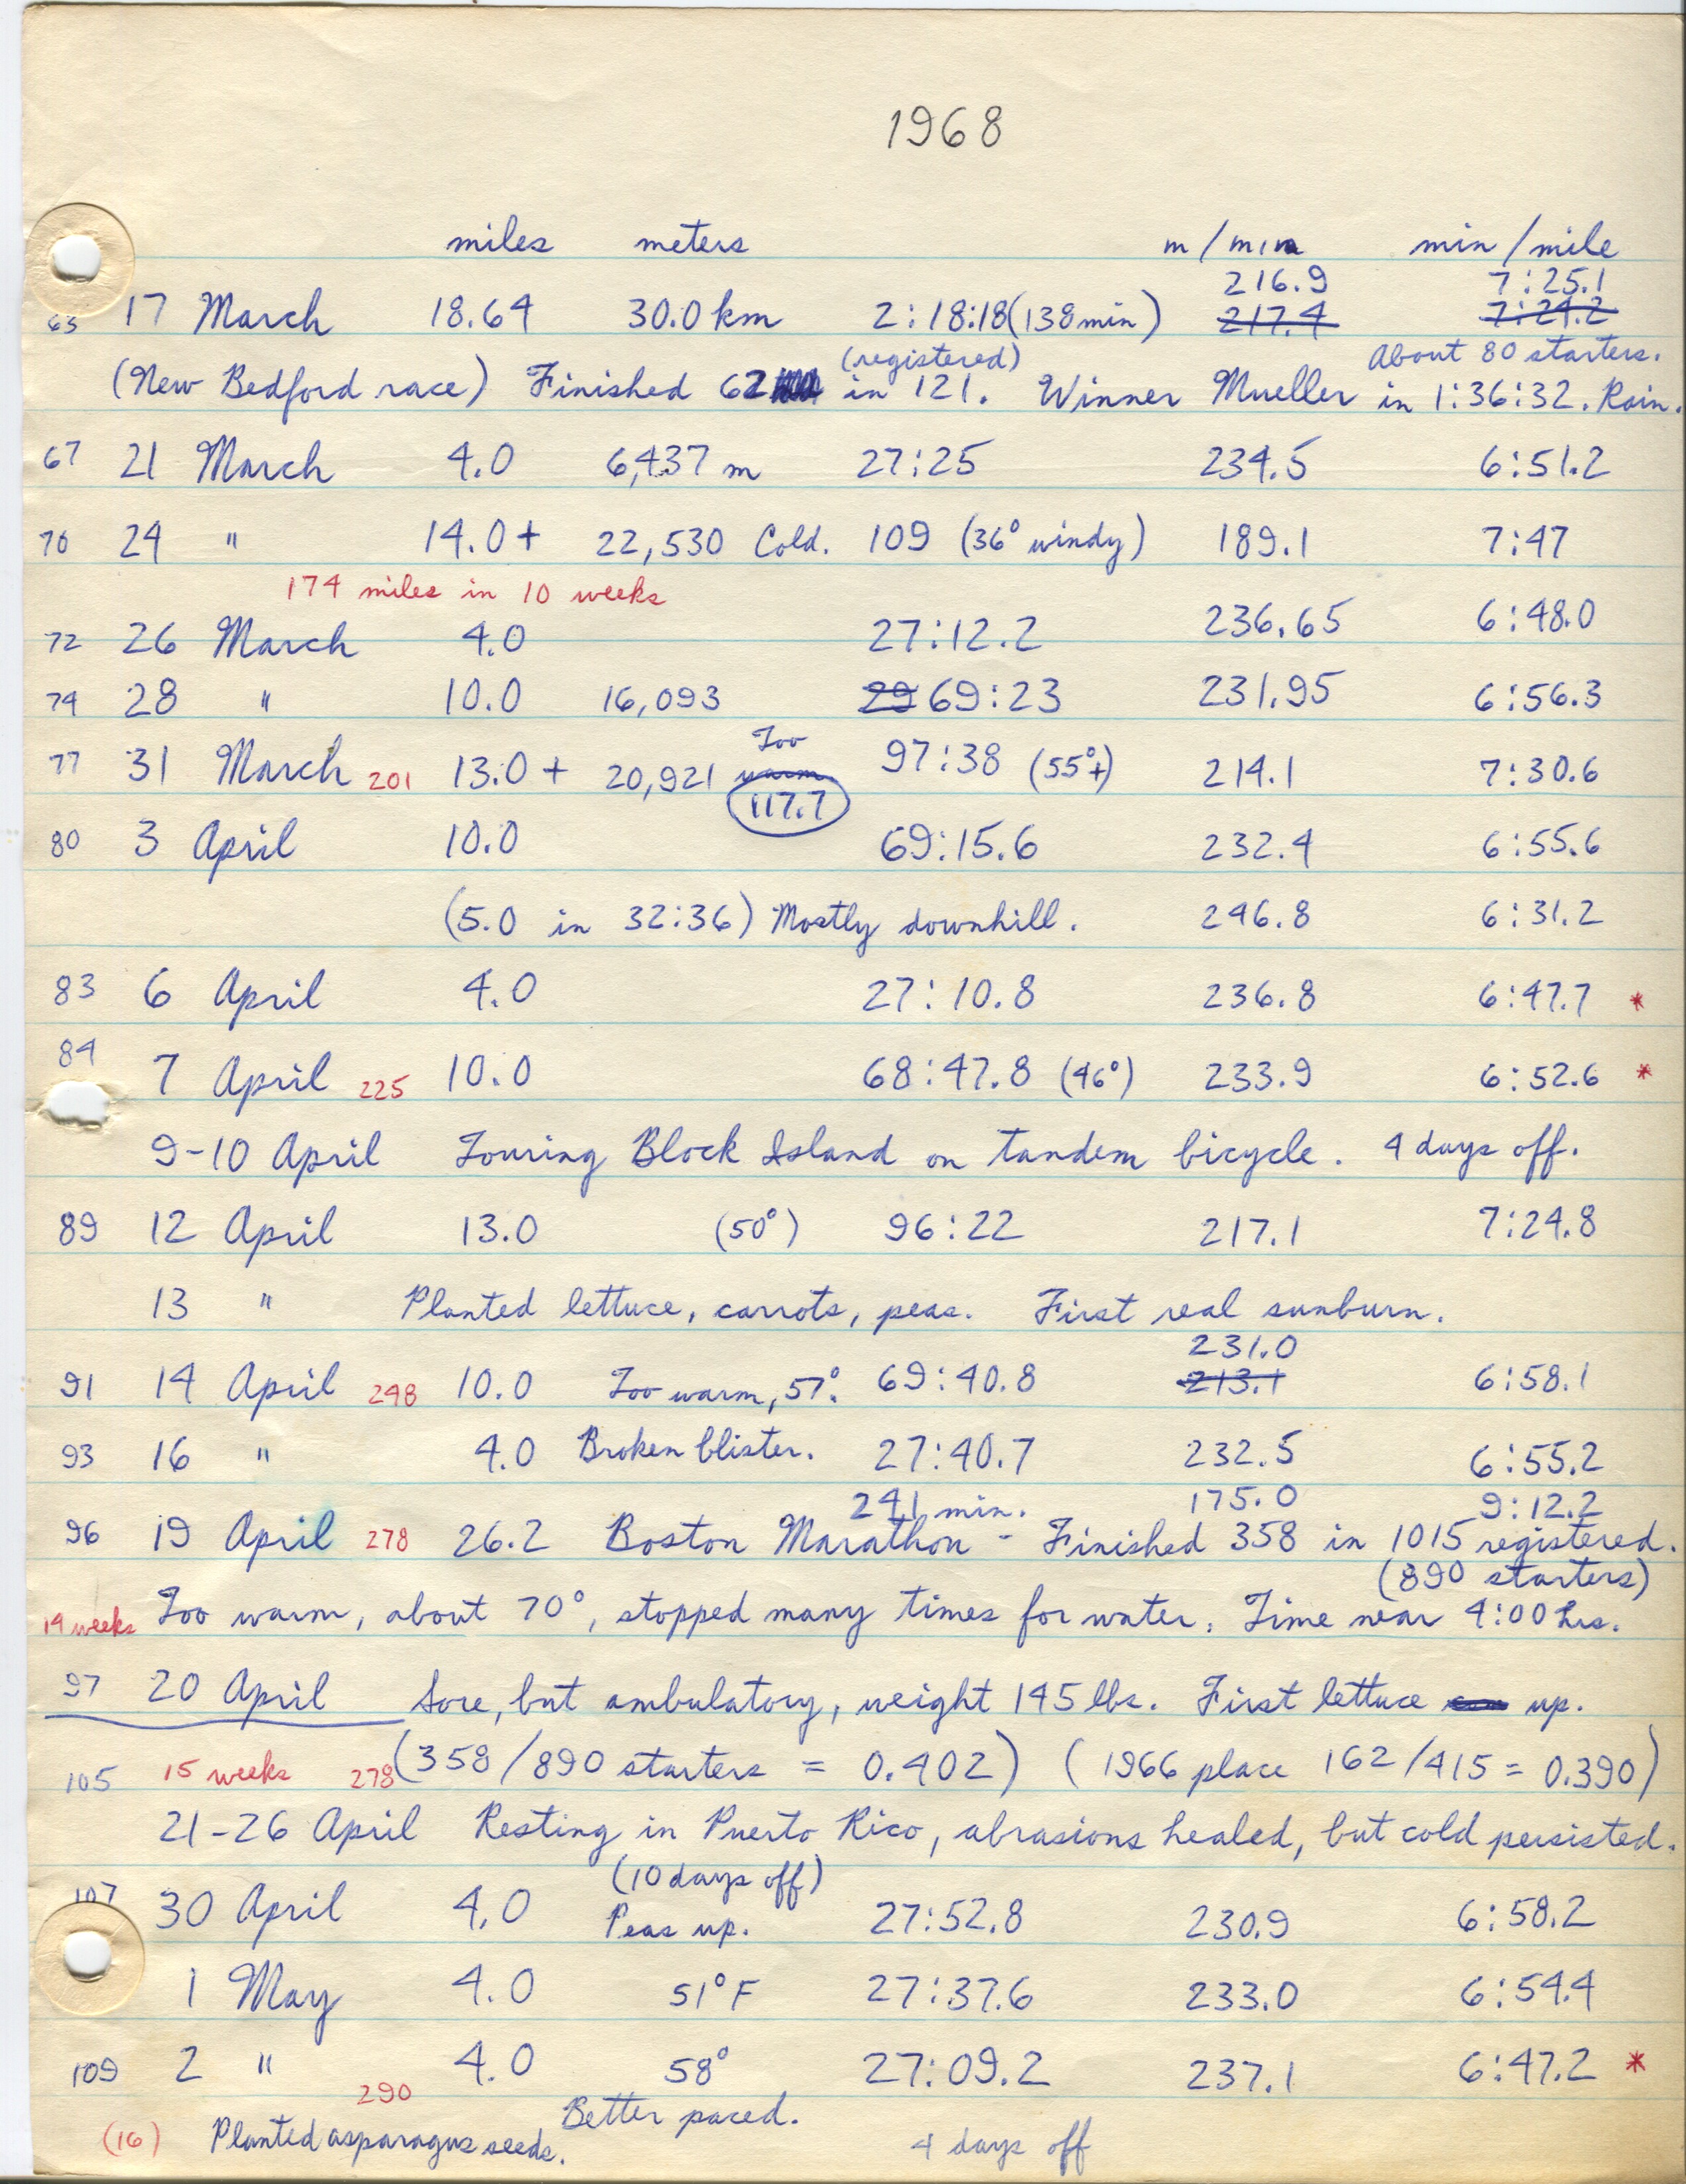 1968
miles meters m/min min/mile
216.9 7:25.1
63 17 March 18.64 30.0 km 2:18:18 (138 min) 217.4 7:24.2
(registered) About 80 starters.
(New Bedford race) Finished 62 in 121. Winner Mueller in 1:36:32. Rain.
67 21 March 4.0 6,437 m 27:25 234.5 6:51.2
70 24 " 14.0+ 22,530 Cold. 109 (36° windy) 189.1 7:47
174 miles in 10 weeks
72 26 March 4.0 27:12.2 236.65 6:48.0
74 28 " 10.0 16,093 29 69:23 231.95 6:56.3
Too
77 31 March 201 13.0+ 20,921 warm. 97:38 (55°+) 214.1 7:30.6
117.7
80 3 April 10.0 69:15.6 232.4 6:55.6
(5.0 in 32:36) Mostly downhill. 246.8 6:31.2
83 6 April 4.0 27:10.8 236.8 6:47.7 *
84 7 April 225 10.0 68:47.8 (46°) 233.9 6:52.6 *
9-10 April Touring Block Island on tandem bicycle. 4 days off.
89 12 April 13.0 (50°) 96:22 217.1 7:24.8
13 " Planted lettuce, carrots, peas. First real sunburn.
231.0
91 14 April 248 10.0 Too warm, 57°. 69:40.8 213.1 6:58.1
93 16 " 4.0 Broken blister. 27:40.7 232.5 6:55.2
241 min. 175.0 9:12.2
96 19 April 278 26.2 Boston Marathon - Finished 358 in 1015 registered.
(890 starters)
14 weeks Too warm, about 70°, stopped many times for water. Time near 4:00 hrs.
97 20 April Sore, but ambulatory, weight 145 lbs. First lettuce up.
105 15 weeks 278 (358/890 starters = 0.402) (1966 place 162/415 = 0.390)
21-26 April Resting in Puerto Rico, abrasions healed, but cold persisted.
(10 days off)
107 30 April 4.0 Peas up. 27:52.8 230.9 6:58.2
1 May 4.0 51°F 27:37.6 233.0 6:54.4
109 2 " 4.0 58° 27:09.2 237.1 6:47.2 *
290 Better paced.
(16) Planted asparagus seeds. 4 days off